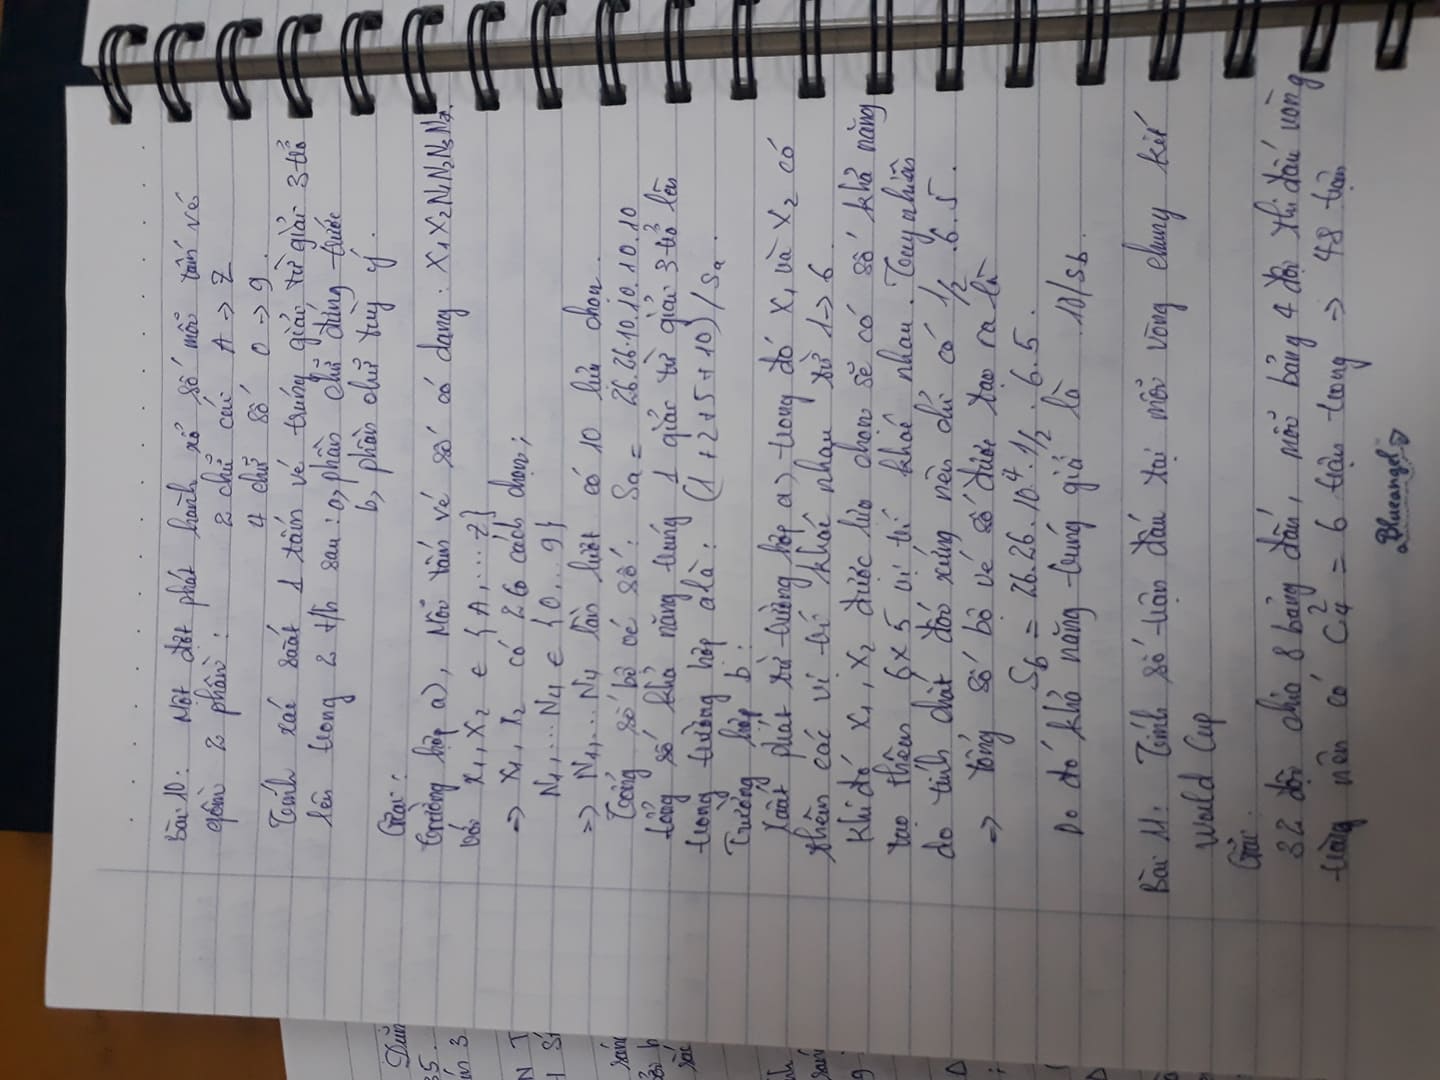 Bài 10: Một đợt phát hành xổ số mỗi tấm vé
gồm 2 phần: 2 chữ cái A -> Z
4 chữ số 0 -> 9.
Tính xác suất 1 tấm vé trúng giải từ giải 3 trở
lên trong 2 t/h sau: a, phần chữ đứng trước
b, phần chữ tùy ý.
Giải:
Trường hợp a), Mỗi tấm vé số có dạng: X1X2N1N2N3N4.
với X1, X2 ∈ {A, .... Z}
=> X1, X2 có 26 cách chọn;
N1, ... N4 ∈ {0... 9}
=> N1, ... N4 lần lượt có 10 lựa chọn.
Tổng số bộ vé số: Sa = 26.26.10.10.10.10
tổng số khả năng trúng 1 giải từ giải 3 trở lên
trong trường hợp a là: (1+2+5+10)/Sa.
Trường hợp b:
Xuất phát từ trường hợp a) trong đó X1 và X2 có
thêm các vị trí khác nhau từ 1 -> 6
Khi đó X1, X2 được lựa chọn sẽ có số khả năng
tạo thêm 6x5 vị trí khác nhau. Tuy nhiên
do tính chất đối xứng nên chỉ có 1/2 .6.5.
=> tổng số bộ vé số được tạo ra là
Sb = 26.26.10^4.1/2.6.5.
Do đó khả năng trúng giải là 18/Sb.
Bài 11: Tính số trận đấu tại mỗi vòng chung kết
World Cup
Giải:
32 đội chia 8 bảng đấu, mỗi bảng 4 đội thi đấu vòng
tròng nên có C4^2 = 6 trận trong => 48 trận
Blueangel